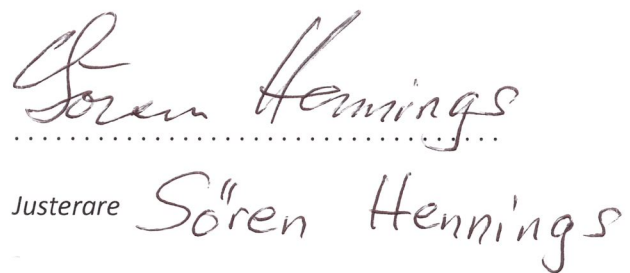 Sören Hennings
Justerare Sören Hennings